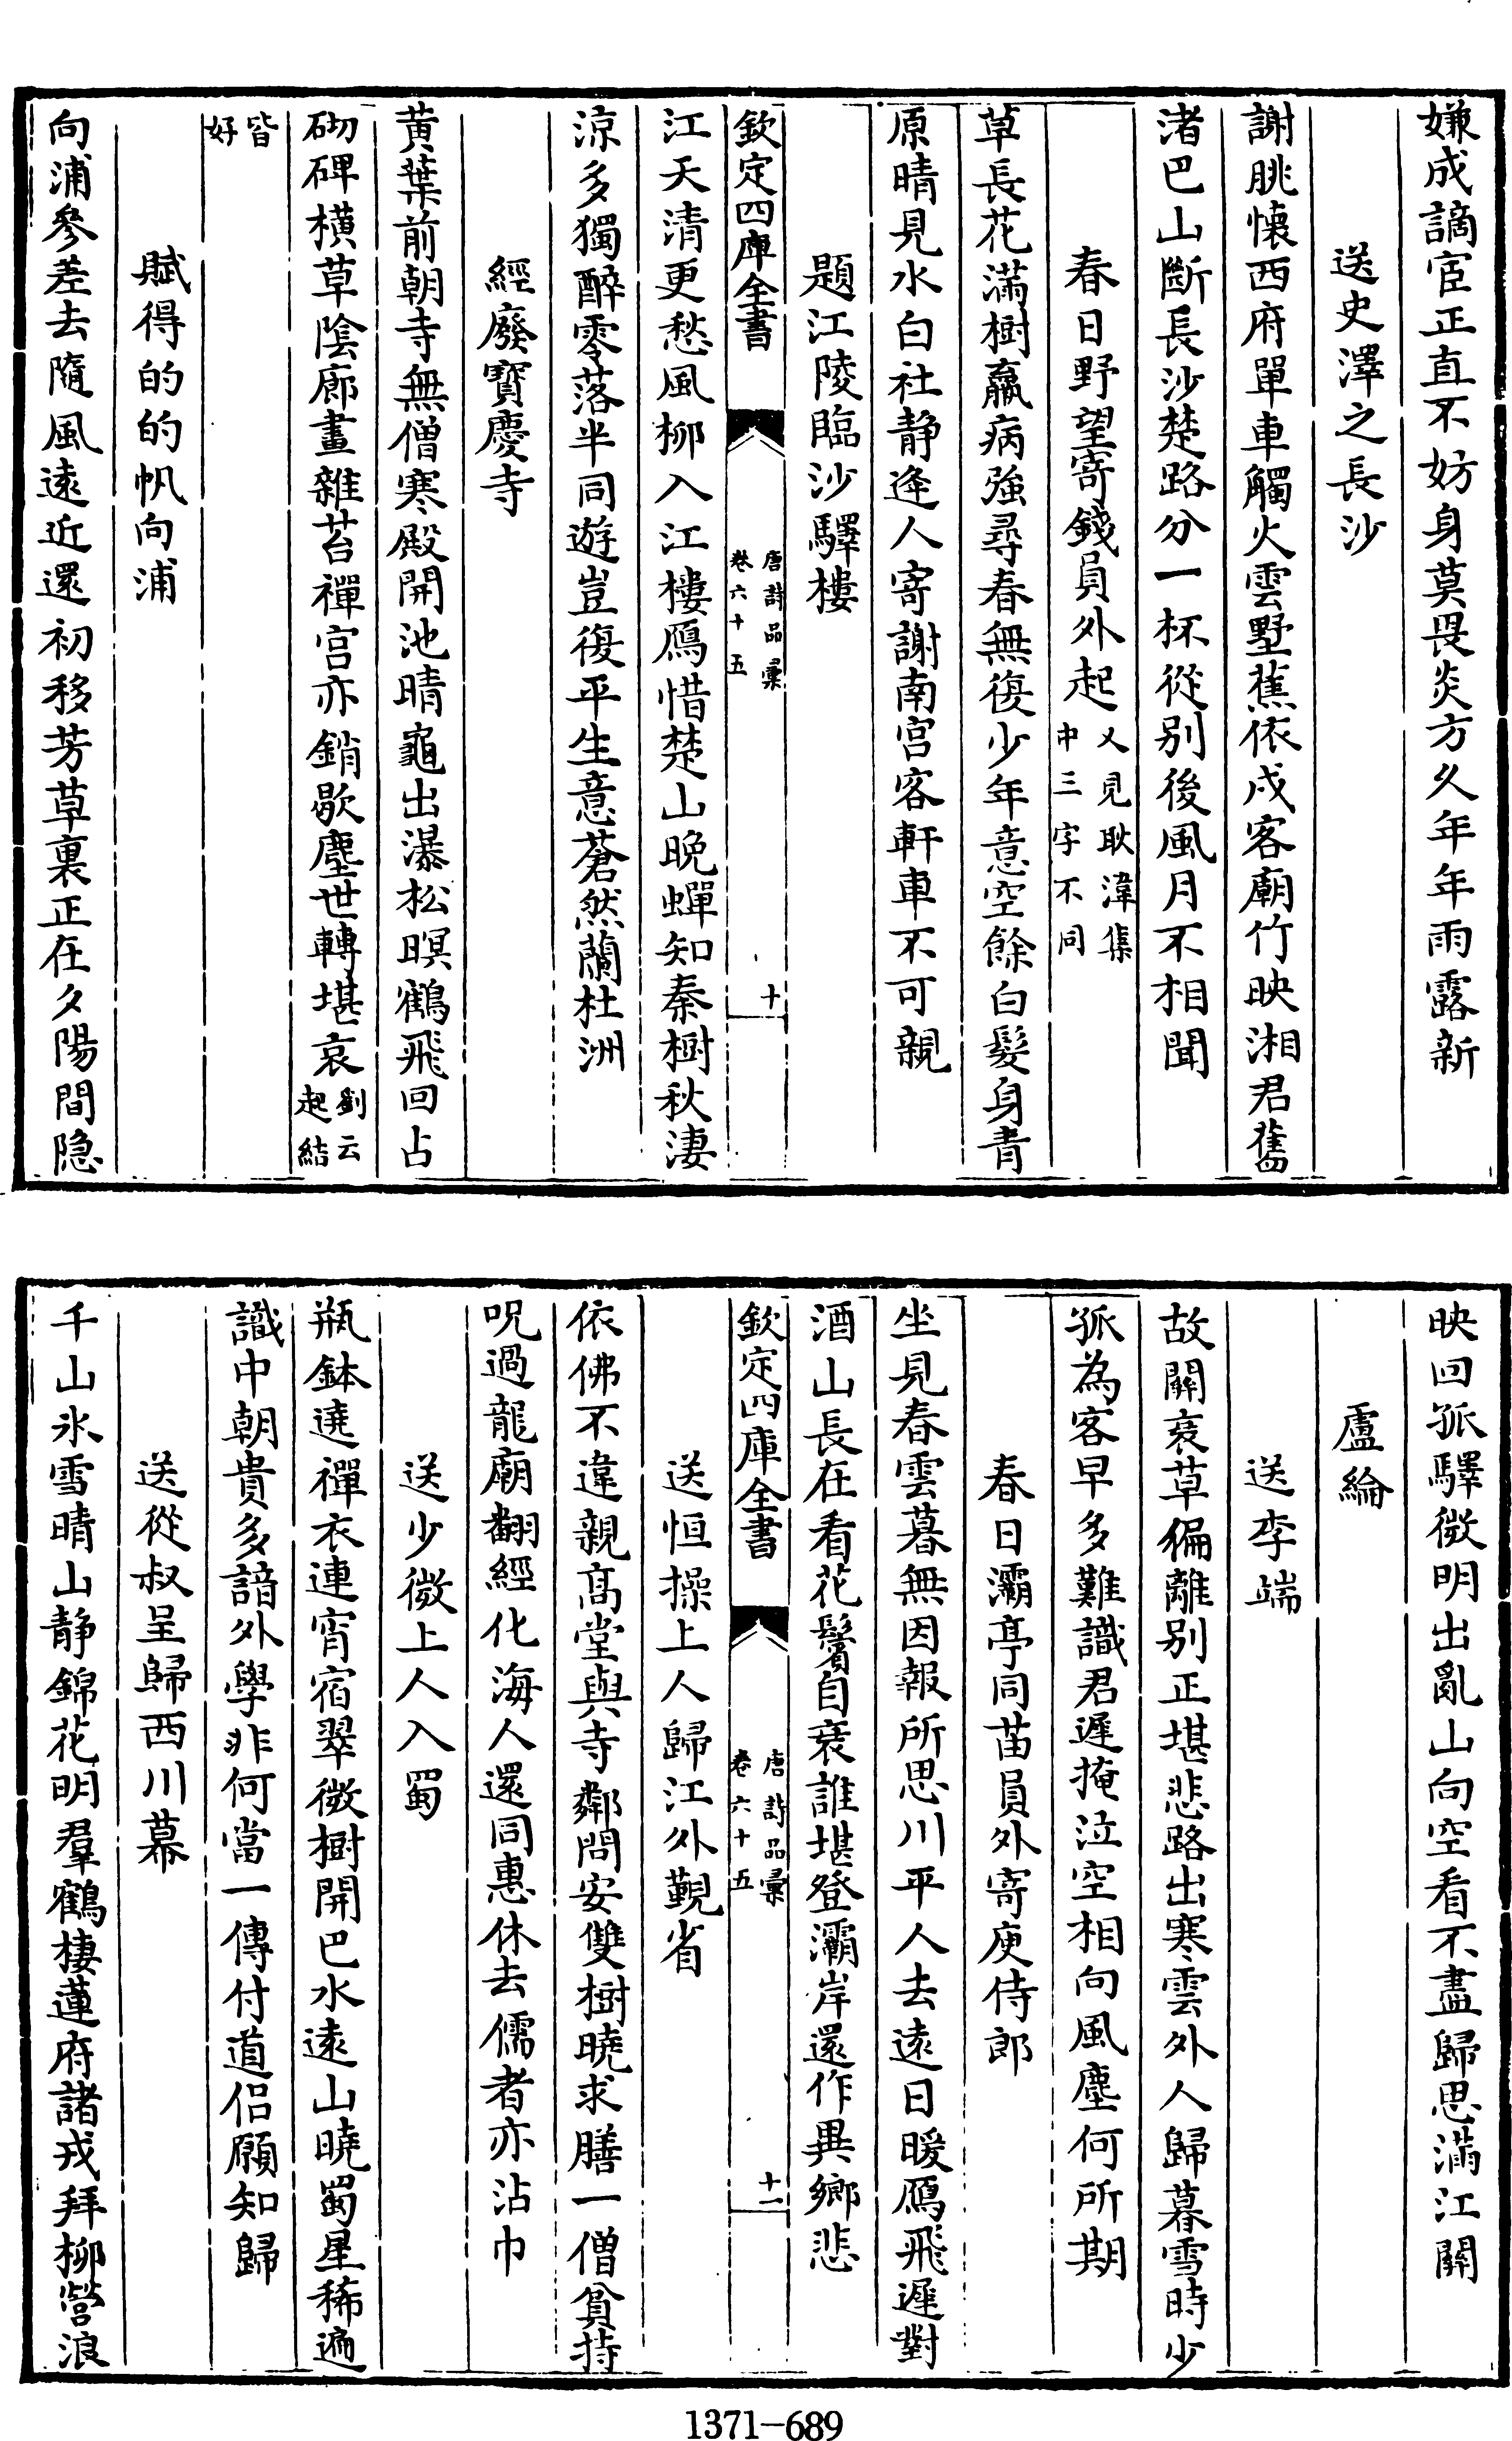 嫌成謫宦正直不妨身莫畏炎方久年年雨露新
送史澤之長沙
謝朓懷西府單車觸火雲墅蕉依戍客廟竹映湘君舊
渚巴山斷長沙楚路分一杯從别後風月不相聞
春日野望寄錢員外起又見耿湋集中三字不同
草長花滿樹羸病強尋春無復少年意空餘白髪身青
原晴見水白社静逄人寄謝南宮客軒車不可親
題江陵臨沙驛樓
欽定四庫全書
唐詩品彙
卷六十五
十
江天清更愁風柳入江樓鴈惜楚山晚蟬知秦樹秋淒
涼多獨醉零落半同遊豈復平生意蒼然蘭杜洲
經廢寳慶寺
黄葉前朝寺無僧寒殿開池晴龜出瀑松暝鶴飛回占
砌碑橫草陰廊畫雜苔禪宫亦銷歇塵世轉堪哀劉云起結
皆好
賦得的的帆向浦
向浦參差去隨風逺近還初移芳草裏正在夕陽間隐
映回孤驛微明出亂山向空看不盡歸思滿江關
盧綸
送李端
故關衰草徧離别正堪悲路出寒雲外人歸暮雪時少
孤為客早多難識君遲掩泣空相向風塵何所期
春日灞亭同苗員外寄庾侍郎
坐見春雲暮無因報所思川平人去逺日暖鴈飛遲對
酒山長在看花鬢自衰誰堪登灞岸還作異鄉悲
欽定四庫全書
唐詩品彙
卷六十五
十一
送恒操上人歸江外覲省
依佛不違親髙堂與寺鄰問安雙樹曉求膳一僧貧持
咒過龍廟翻經化海人還同惠休去儒者亦沾巾
送少微上人入蜀
瓶鉢遶禪衣連宵宿翠微樹開巴水逺山曉蜀星稀遍
識中朝貴多諳外學非何當一傳付道侣願知歸
送從叔呈歸西川幕
千山氷雪晴山静錦花明羣鶴棲蓮府諸戎拜柳營浪
1371-689